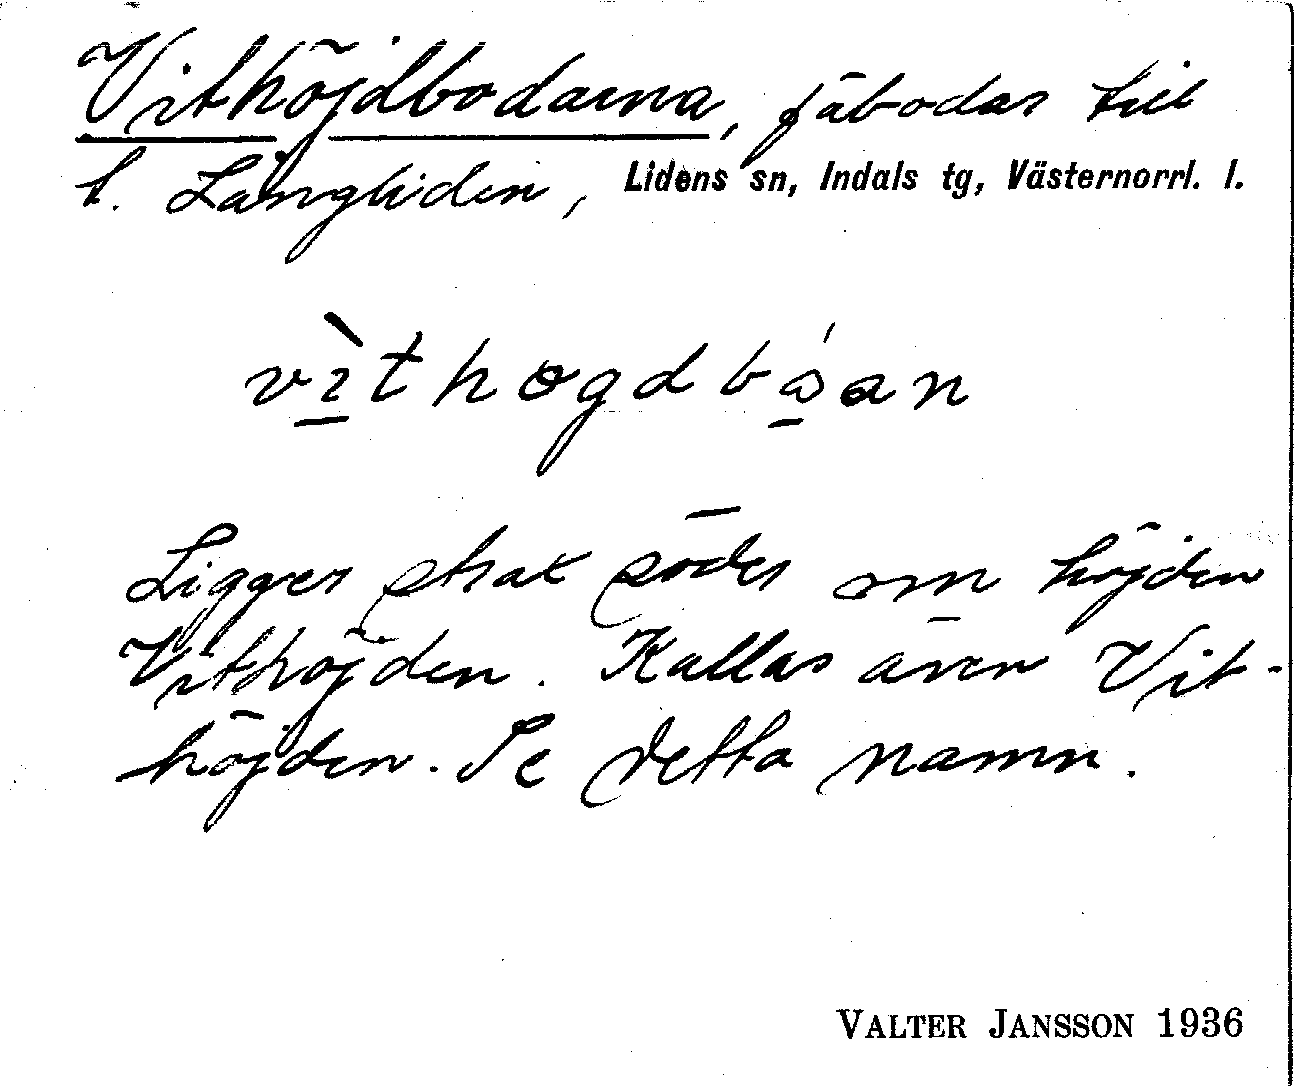 Vithöjdbodarna, fäbodar till
h. Långliden, Lidens sn, Indals tg, Västernorrl. l.
vìthøgdbǻan
Ligger strax söder om höjden
Vithöjden. Kallas även Vit-
höjden. Se detta namn.
VALTER JANSSON 1936